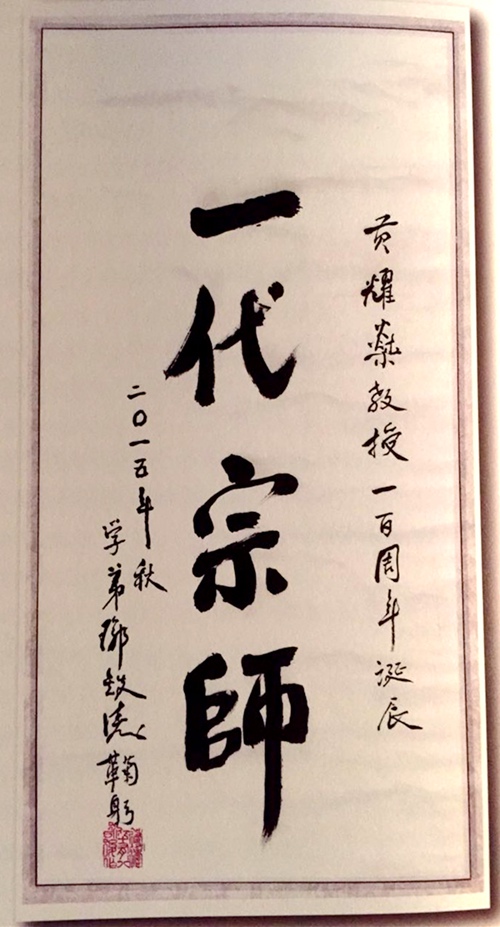 黄耀燊教授一百周年诞辰
一代宗師
二〇一五年秋
学弟鄧铁涛鞠躬